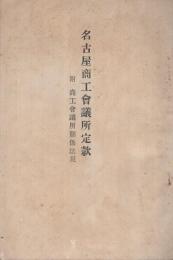 名古屋商工會議所定款
附 商工會議所關係法規